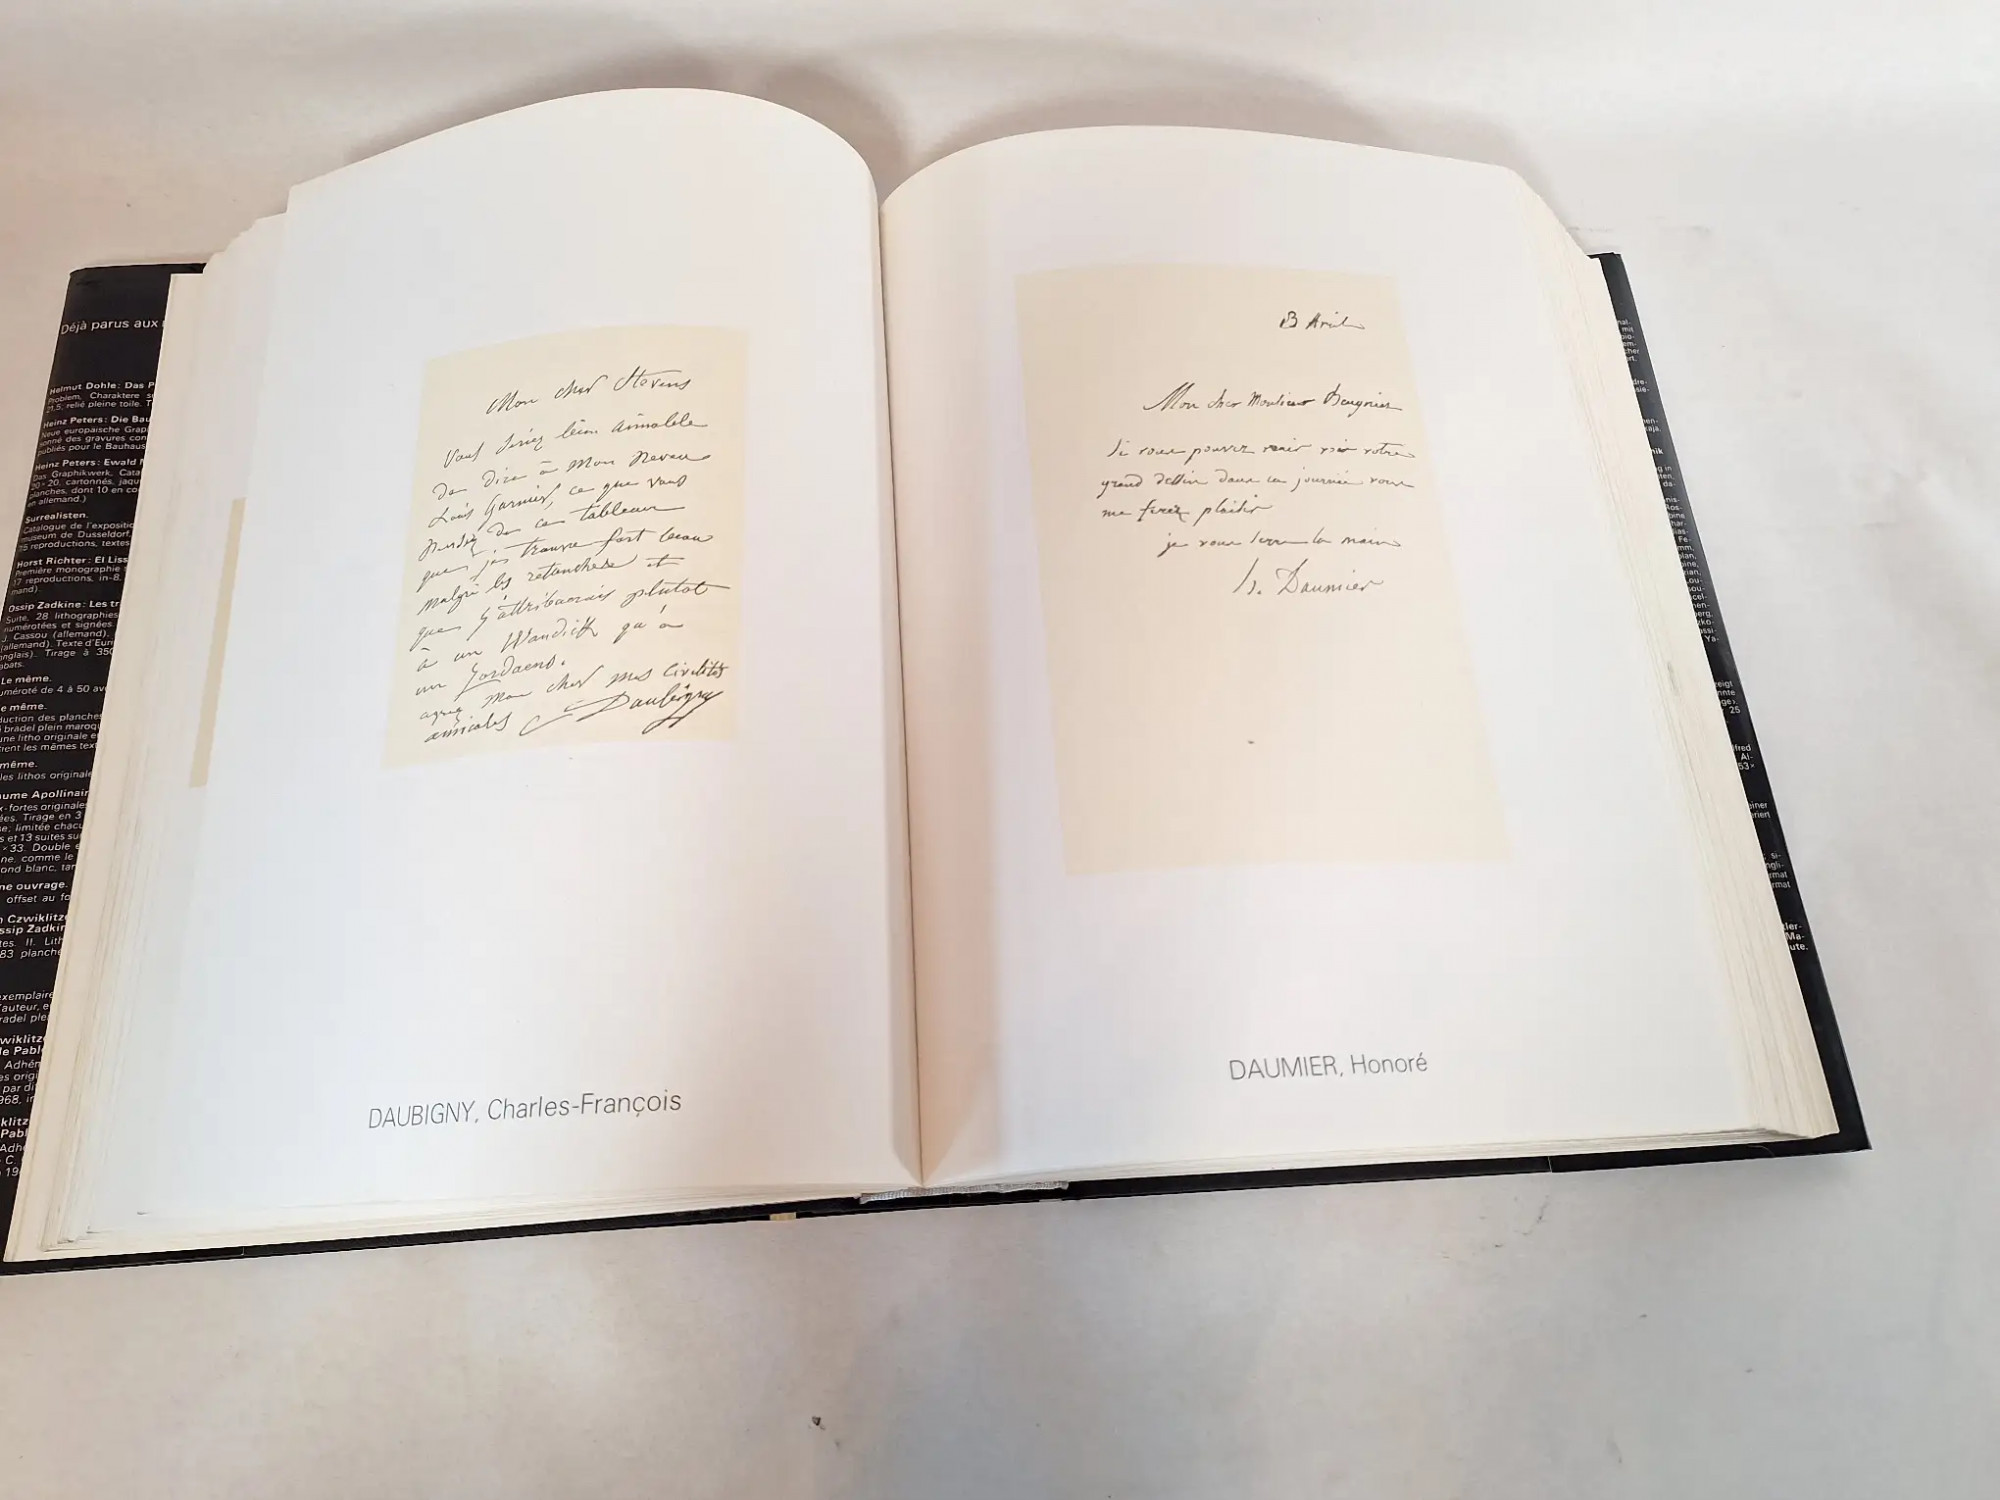 Déjà parus aux
Helmut Dohle: Das P
Problem, Charaktere
21,5; relié pleine toile. T
Heinz Peters: Die Bau
Neue europäische Grap
sonné des gravures con
publiés pour le Bauhaus
Heinz Peters: Ewald
Das Graphikwerk, Cata
20×20, cartonnés, jaqu
planches, dont 10 en co
en allemand.)
Surrealisten.
Catalogue de l'expositio
museum de Dusseldorf,
25 reproductions, textes
Horst Richter: El Liss
Première monographie
17 reproductions, in-8,
mand).
Ossip Zadkine: Les tr
Suite, 28 lithographies
numérotées et signées.
J. Cassou (allemand),
(allemand). Texte d'Eur
anglais). Tirage à 350
Le même.
uméroté de 4 à 50 av
e même.
duction des planches
bradel plein maroq
une litho originale e
tient les mêmes tex
même.
les lithos originale
ume Apollinair
x-fortes originales
ées. Tirage en 3
se; limitée chacu
s et 13 suites su
× 33. Double e
ne, comme le
ond blanc, tan
ne ouvrage.
offset au fo
Czwiklitze
ssip Zadkin
tes. II. Lith
83 planche
exemplaire
l'auteur, e
radel ple
wiklitz
le Pabl
Adhém
es origi
par di
968, in
klitz
Pabl
Adh
C.
19
Mon cher Stevens
Vous seriez bien aimable
de dire à mon neveu
Louis Garnier, ce que vous
pensez de ce tableau
que je trouve fort beau
malgré les retouches et
que j'attribuerais plutot
à un Vandick qu'à
un Jordaens.
agréez mon cher mes civilités
amicales C Daubigny
DAUBIGNY, Charles-François
3 Avril
Mon cher Monsieur Beugniet
Si vous pouvez venir voir votre
grand dessin dans la journée vous
me ferez plaisir
je vous serre la main
h. Daumier
DAUMIER, Honoré